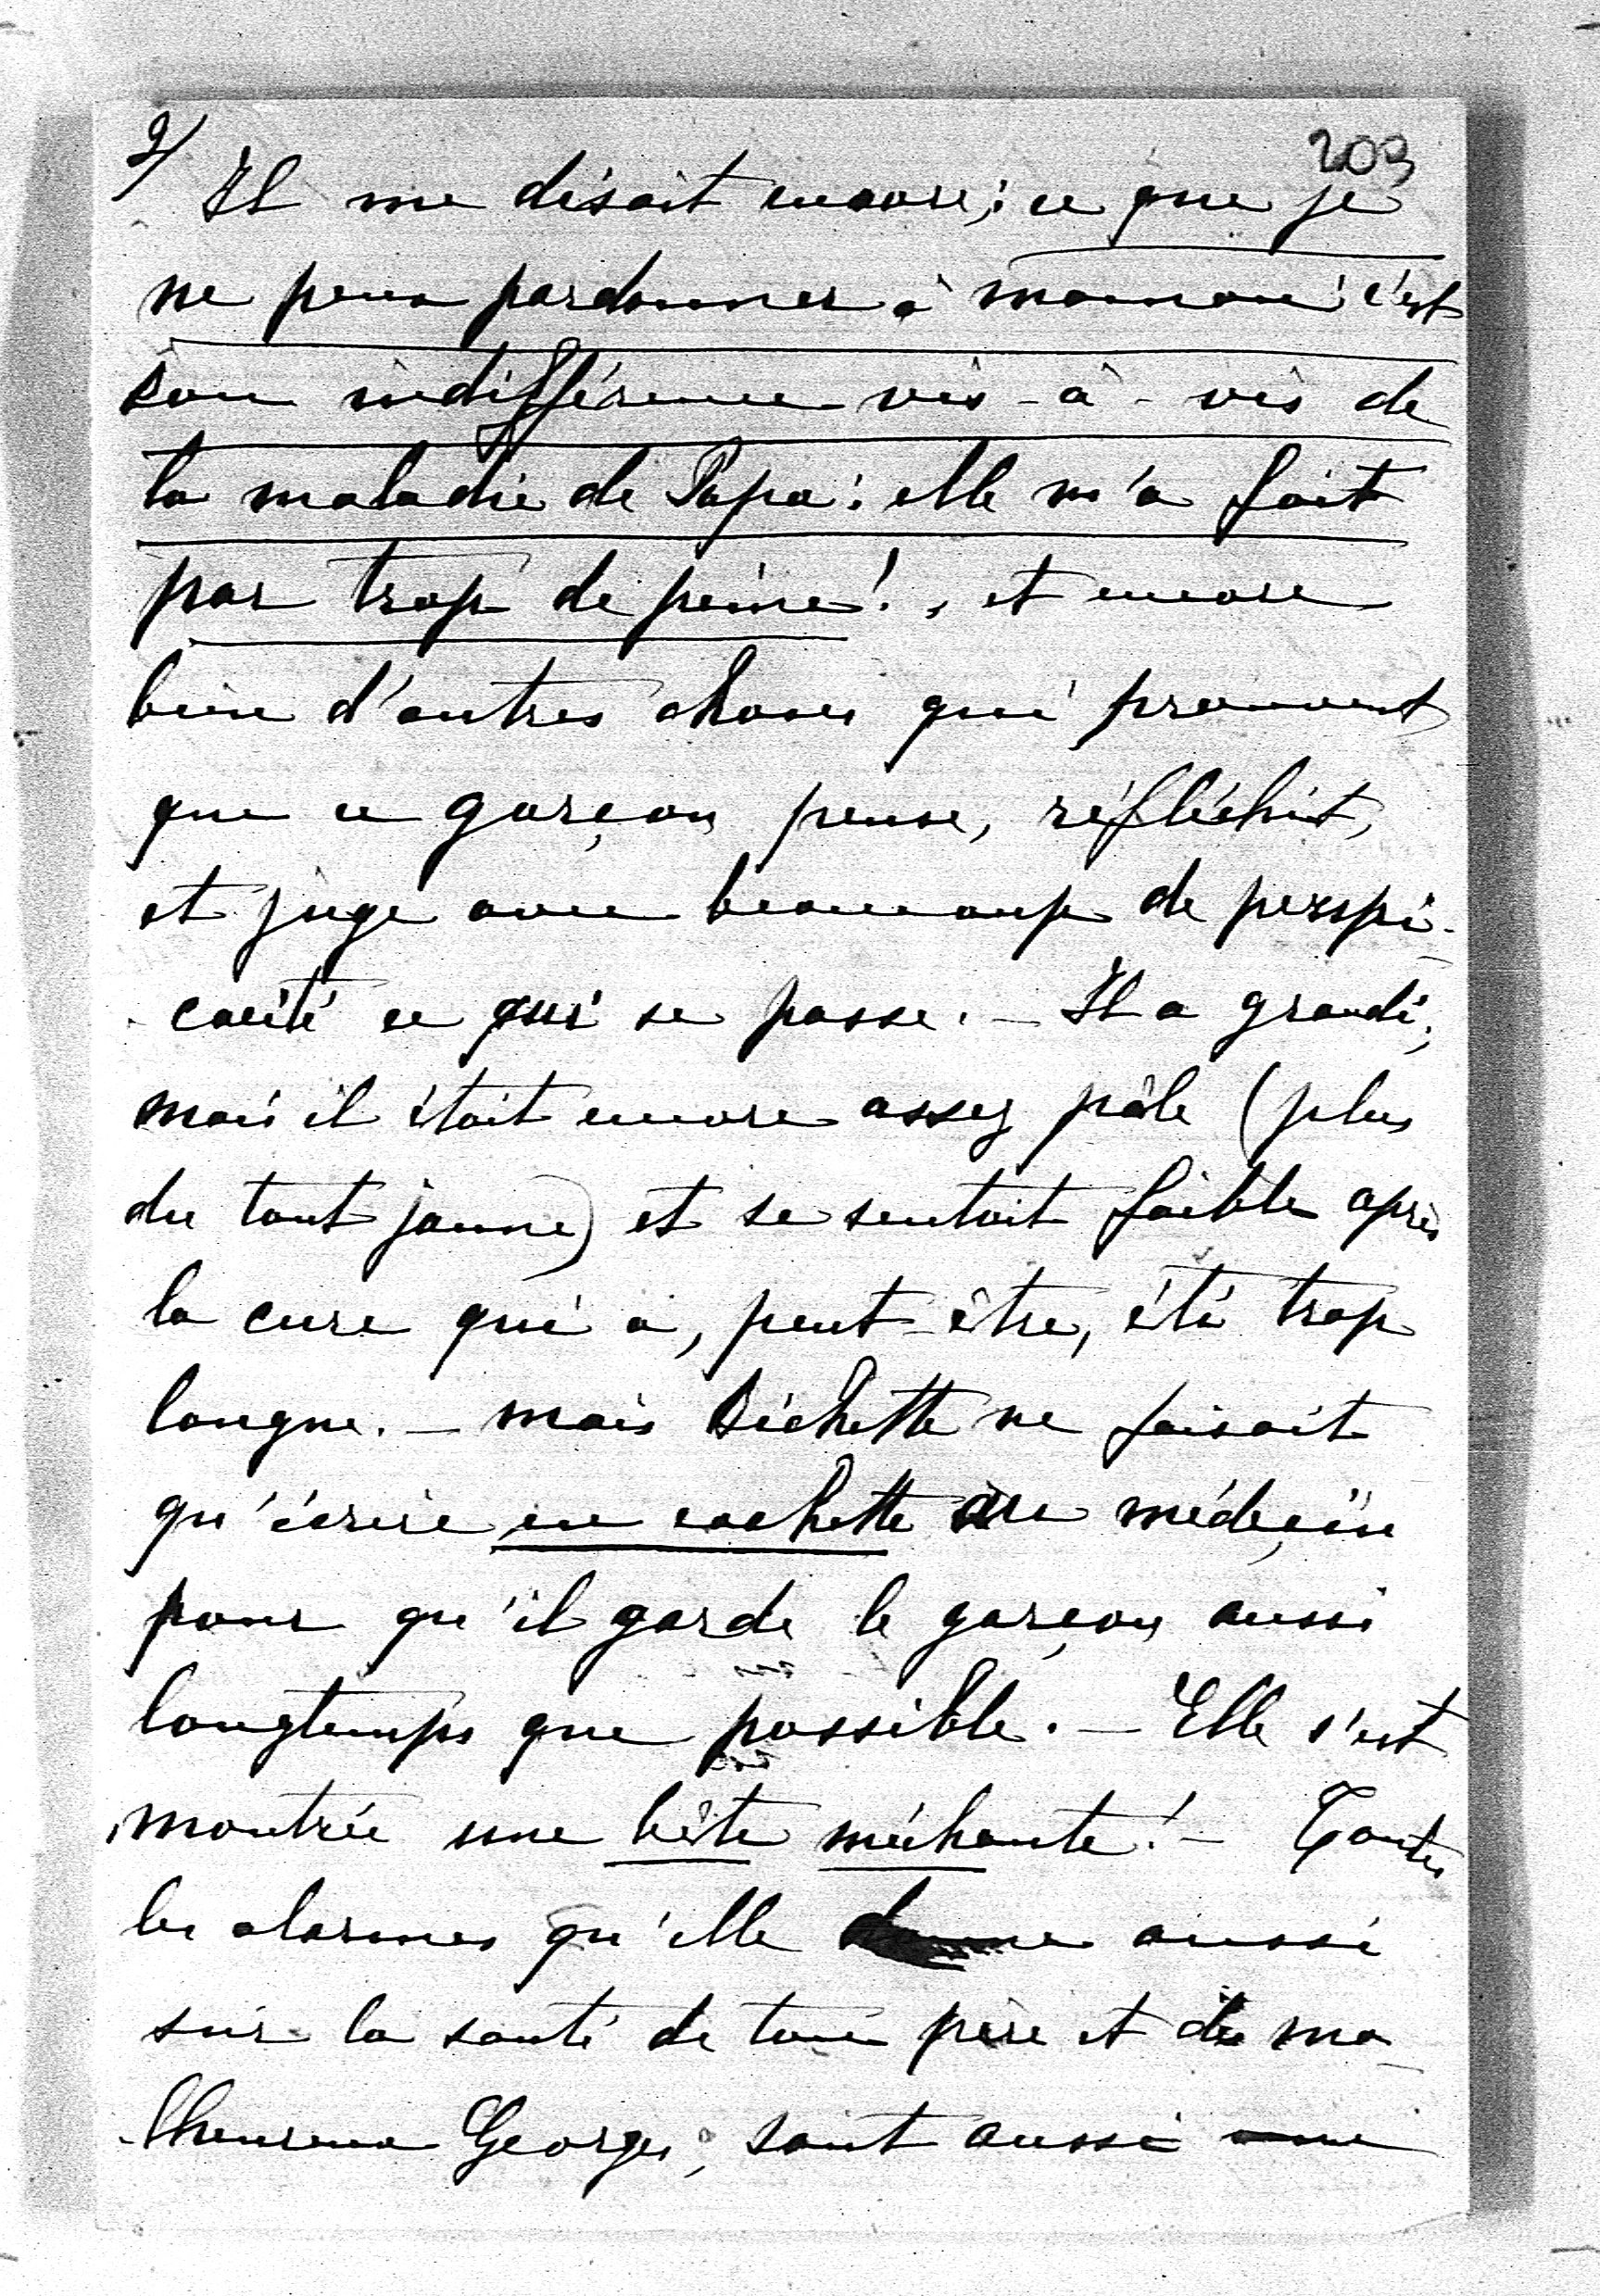 2/
203
Il me disait encore; ce que je
ne peux pardonner à maman c'est
son indifférence vis-à-vis de
la maladie de Papa: elle m'a fait
par trop de peine!, et encore
bien d'autres choses qui prouvent
que ce garçon pense, réfléchit,
et juge avec beaucoup de perspi-
-cacité ce qui se passe. — Il a grandi;
mais il était encore assez pâle (plus
du tout jaune) et se sentait faible après
la cure qui a, peut-être, été trop
longue. — mais Bichette ne faisait
qu'écrire en cachette au médecin
pour qu'il garde le garçon aussi
longtemps que possible. — Elle s'est
montrée une bête méchante! — Toutes
les alarmes qu'elle donne aussi
sur la santé de ton père et du ma-
-lheureux Georges, sont aussi